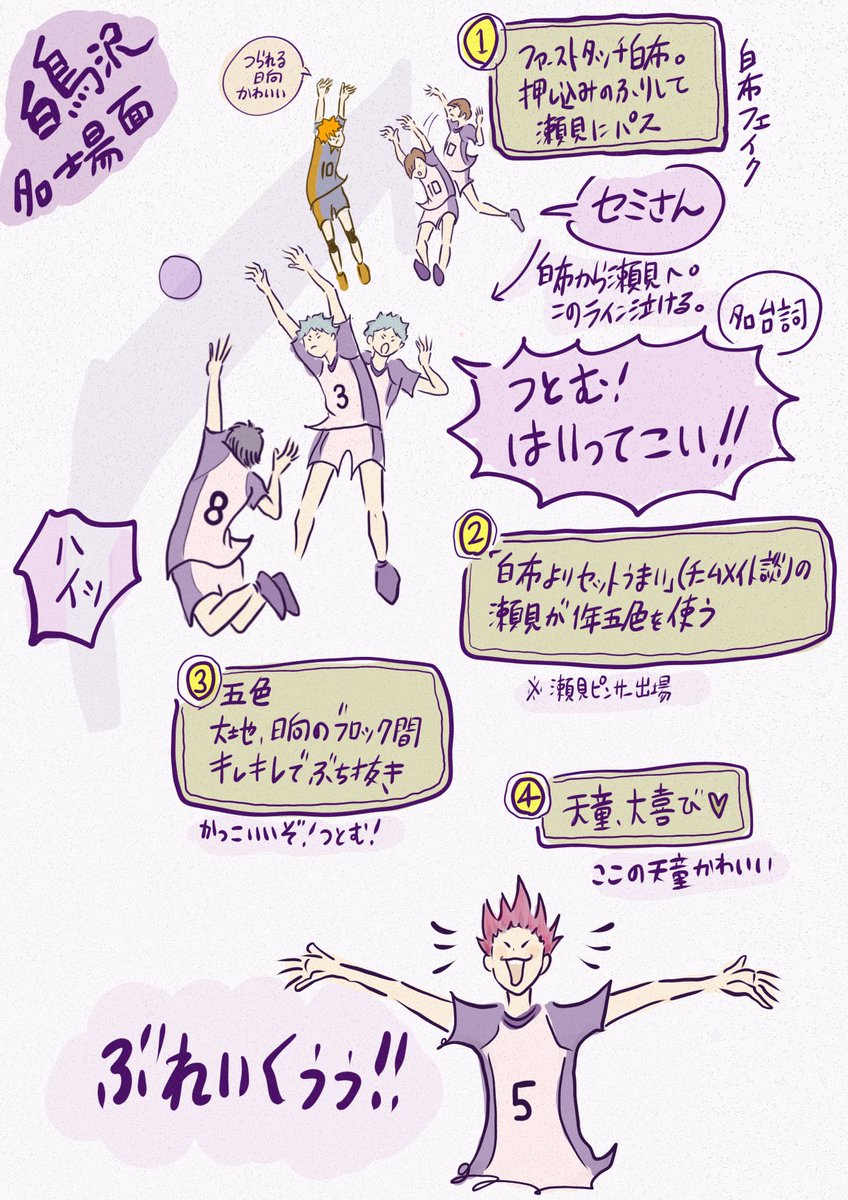 白鳥沢
名場面
つられる
日向
かわいい
10
10
10
1
ファーストタッチ白布。
押し込みのふりして
瀬見にパス
白布フェイク
セミさん
白布から瀬見へ。
このライン泣ける。
名台詞
つとむ!
はいってこい!!
3
8
ハイッ
2
「白布よりセットうまい」(チームメイト談)の
瀬見が1年五色を使う
※瀬見ピンサー出場
3
五色
大地、日向のブロック間
キレキレでぶち抜き
かっこいいぞ!つとむ!
4
天童、大喜び♡
ここの天童かわいい
ぶれいくぅぅ!!
5